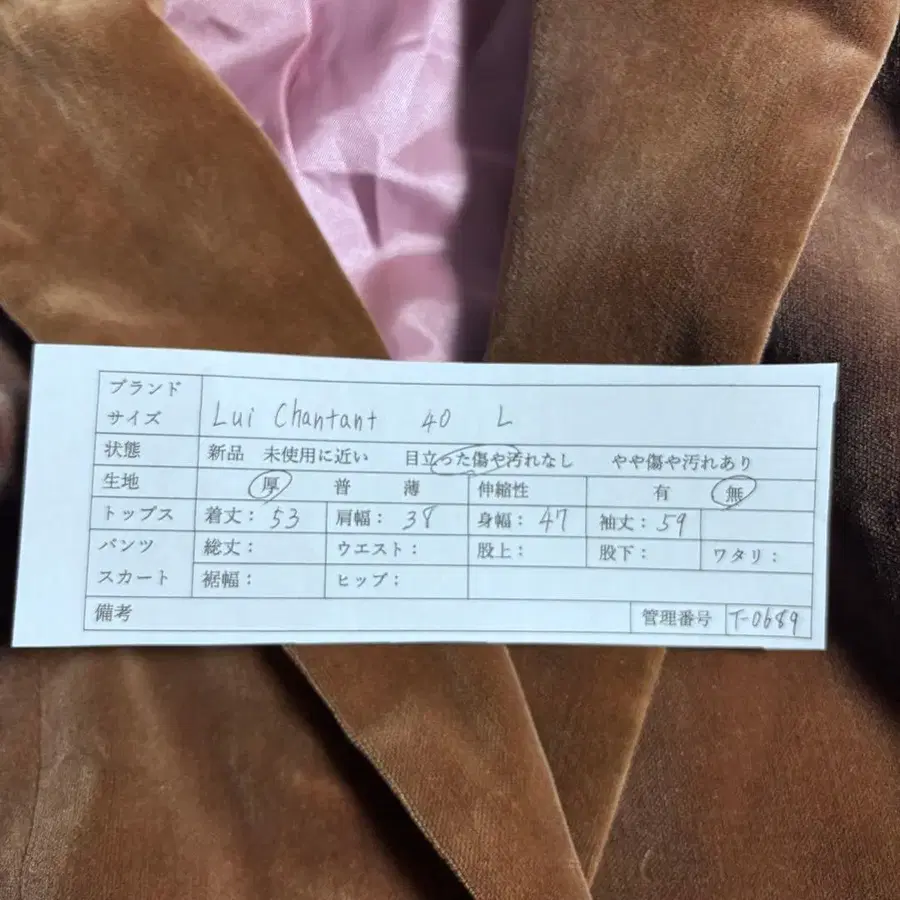 ブランド
サイズ Lui Chantant 40 L
状態 新品 未使用に近い 目立った傷や汚れなし やや傷や汚れあり
生地 厚 普 薄 伸縮性 有 無
トップス 着丈：53 肩幅：38 身幅：47 袖丈：59
パンツ 総丈： ウエスト： 股上： 股下： ワタリ：
スカート 裾幅： ヒップ：
備考 管理番号 T-0689